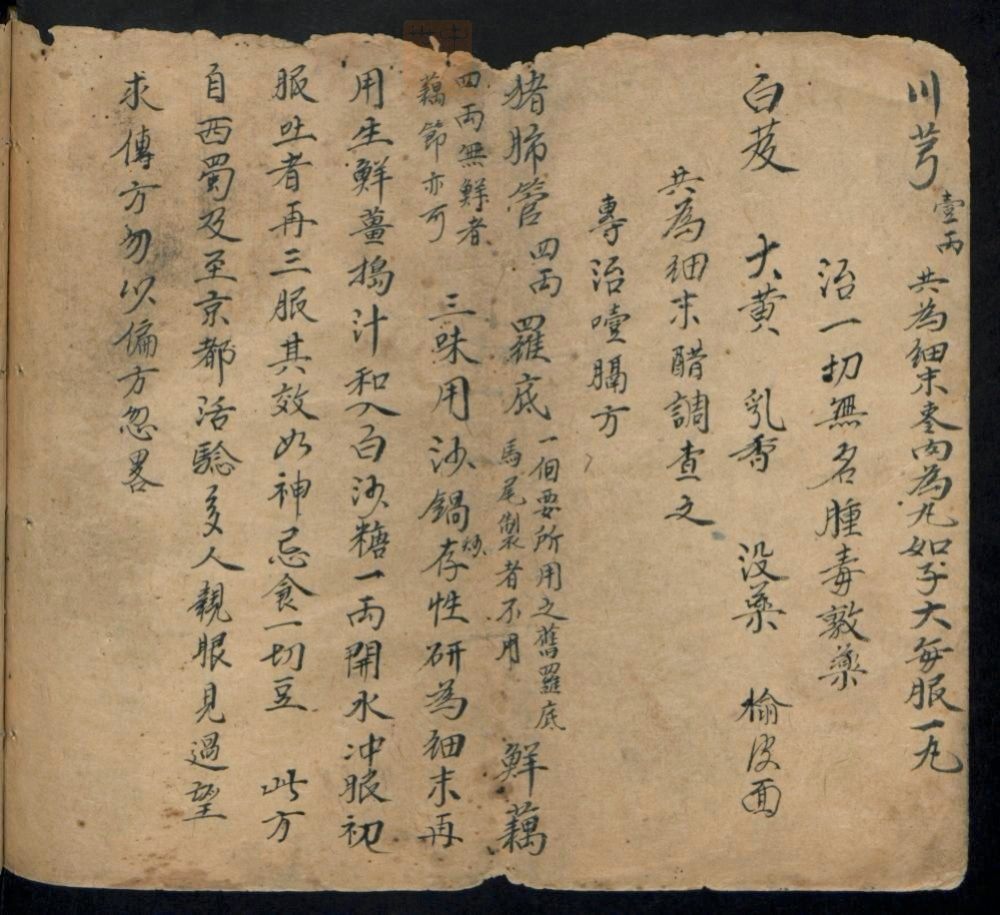 川芎壹両 共為細末枣肉為丸如子大每服一丸
治一切無名腫毒敦藥
白芨 大黄 乳香 没藥 榆皮面
共為細末醋調查之
專治噎膈方
猪肺管四両 羅底一個要所用之舊羅底馬尾製者不用 鮮藕
四両無鮮者藕節亦可 三味用沙鍋炒存性研為細末再
用生鮮薑搗汁和入白沙糖一両開水冲服初
服吐者再三服其效如神忌食一切豆 此方
自西蜀及至京都活驗多人親眼見過望
求傳方勿以偏方忽畧